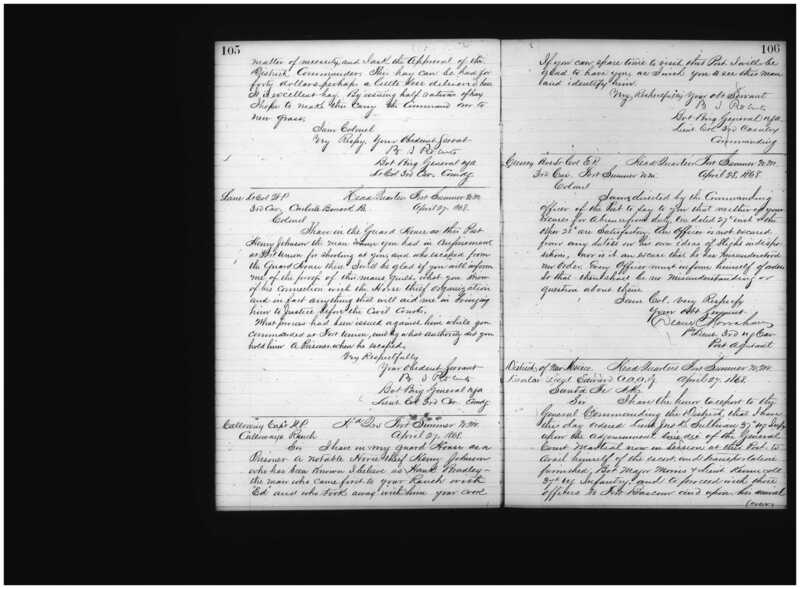 105
matter of necessity and I ask the Approval of the
District Commander. The hay can be had for
forty dollars perhaps a little less delivered here
It is excellent hay. By issuing half rations of hay
I hope to make this carry the Command over to
new grass.
I am Colonel
Very Respy. Your Obedient Servant
B. S. Roberts
Bvt Brig General USA
Lt Col 3rd Cav. Comdg.
Lane Lt Col W. B. Head Quarters Fort Sumner N.M.
3rd Cav. Carlisle Barracks Pa. April 27. 1868.
Colonel
I have in the Guard House at this Post
Henry Johnson the man whom you had in confinement
at Fort Union for shooting at you, and who escaped from
the Guard House there. I will be glad if you will inform
me of the proof of this man's guilt, what you know
of his connection with the Horse thief organization
and in fact anything that will aid me in bringing
him to Justice before the Civil Courts.
What process had been issued against him while you
commanded at Fort Union, and by what authority did you
hold him A Prisoner when he escaped.
Very Respectfully
Your Obedient Servant
B. S. Roberts
Bvt Brig General USA
Lieut Col 3rd Cav. Comdg
Calloway Capt Hd Qrs Fort Sumner N.M.
Calloways Ranch April 27. 1868.
Sir I have in my guard House as a
Prisoner A notable Horse thief Henry Johnson
who has been known I believe as Hank
the man who came first to your Ranch with
"Ed" and who took away with him your cook
106
If you can spare time to visit this Post I will be
glad to have you, as I wish you to see this man
and identify him.
Very Respectfully Your Obt Servant
B S Roberts
Bvt Brig General USA
Lieut Col. 3rd Cavalry
Commanding
Bvt Lt Col Head Quarters Fort Sumner N.M.
3rd Cav. Fort Sumner N.M. April 28. 1868.
Colonel
I am directed by the Commanding
Officer of the Post to say to you that neither of your
excuses for Absence from duty, one dated 27" inst & the
other 28" are Satisfactory. An Officer is not excused
from any duties on his own ideas of Slight indispo
sition, nor is it an excuse that he has Misunderstood
an Order. Every Officer must inform himself of orders
so that there shall be no Misunderstanding or
question about them
I am Col. Very Respefy
Your Obt Servant
Deane Monahan
1st Lieut 3rd US Cav
Post Adjutant
District of New Mexico Head Quarters Fort Sumner N.M.
Edward A.A.A.G April 27. 1868.
Santa Fe N.M.
Sir I have the honor to report to the
General Commanding the District, that I have
this day ordered Lieut Sullivan 37" US Infy
upon the adjournment sine die of the General
Court Martial now in session at this Post, to
avail himself of the escort and transportation
furnished, Bvt Major Morris & Lieut
37th US Infantry and to proceed with those
officers to Fort Bascom and upon his arrival
(over)